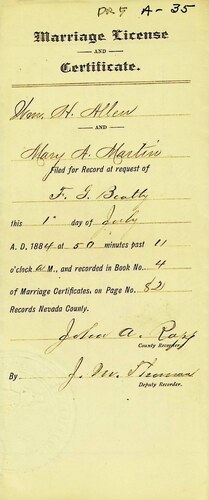 DR 9 A-35
Marriage License
AND
Certificate.
Wm. H. Allen
AND
Mary A. Martin
Filed for Record at request of
F. G. Beatty
this 1st day of July
A. D. 1884 at 50 minutes past 11
o'clock A M., and recorded in Book No. 4
of Marriage Certificates, on Page No. 82
Records Nevada County.
John A.
County Recorder.
By J. M. Thomas
Deputy Recorder.